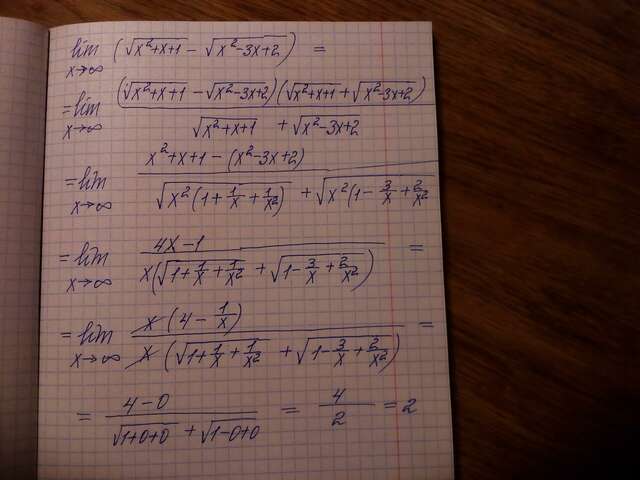 lim x→∞ (√(x²+x+1) − √(x²−3x+2)) =
= lim x→∞ ((√(x²+x+1) − √(x²−3x+2))(√(x²+x+1) + √(x²−3x+2))) / (√(x²+x+1) + √(x²−3x+2))
= lim x→∞ (x²+x+1 − (x²−3x+2)) / (√(x²(1+1/x+1/x²)) + √(x²(1−3/x+2/x²
= lim x→∞ (4x−1) / (x(√(1+1/x+1/x²) + √(1−3/x+2/x²))) =
= lim x→∞ (x(4−1/x)) / (x(√(1+1/x+1/x²) + √(1−3/x+2/x²))) =
= (4−0) / (√(1+0+0) + √(1−0+0)) = 4/2 = 2